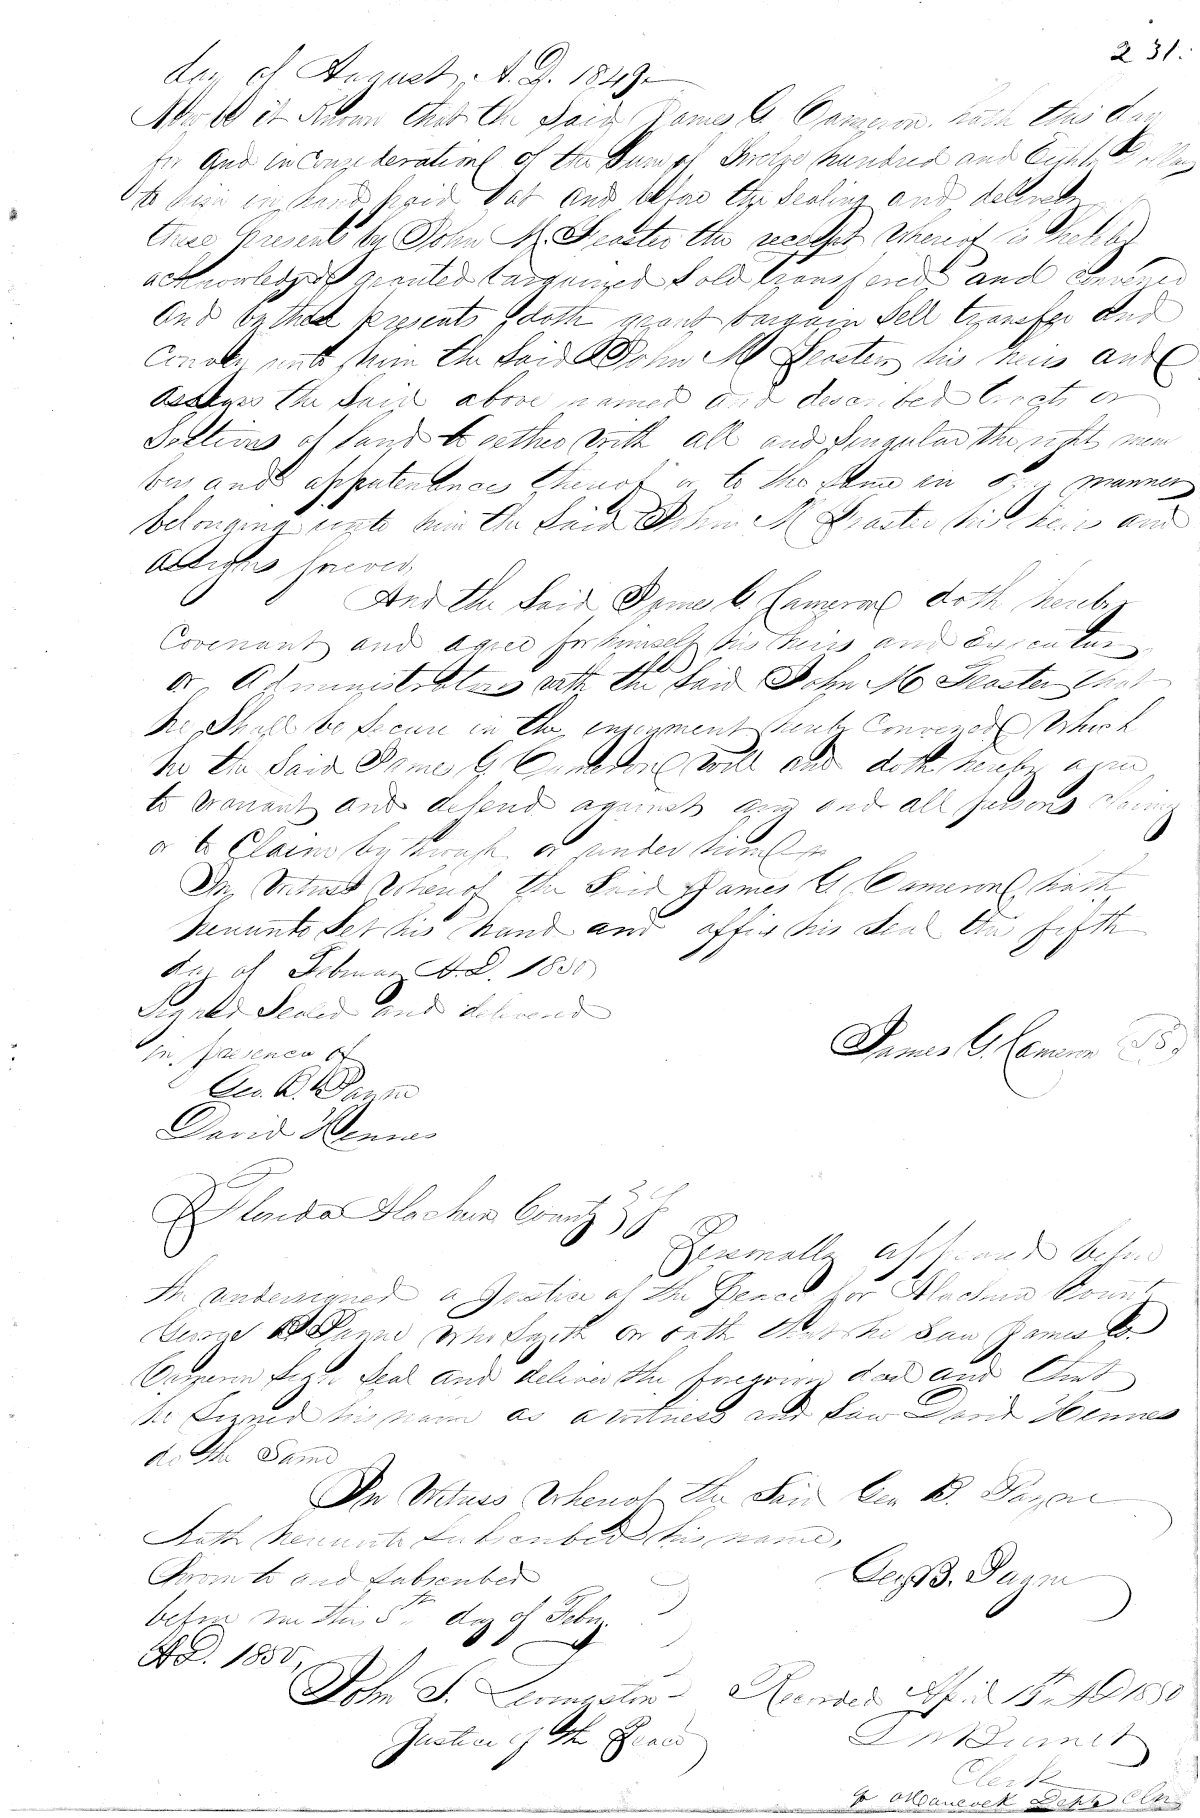 231.
day of August, A.D. 1849.
Now be it Known that the Said James G. Cameron hath this day
for and in Consideration of the Sum of Twelve hundred and Eighty Dollars
to him in hand paid at and before the Sealing and delivery
these Presents by John M. Feaster the receipt Whereof is hereby
acknowledged granted bargained Sold transfered and conveyed
and by these presents doth grant bargain Sell transfer and
Convey unto him the Said John M Feaster his heirs and
assigns the Said above named and described tracts or
Sections of land together With all and Singular the right mem
bers and appertenances thereof or to the Same in any manner
belonging unto him the Said John M Feaster his heirs and
assigns forever,
And the Said James G. Cameron doth hereby
Covenant and agree for himself his heirs and Executors
or Administrators with the Said John M Feaster that
he Shall be Secure in the enjoyment hereby Conveyed Which
he the Said James G. Cameron Will and doth hereby agree
to Warrant and defend against any and all persons
or to Claim by through or under him
In Witness Whereof the Said James G. Cameron hath
hereunto Set his hand and affix his Seal this fifth
day of February A.D. 1850
Signed Sealed and delivered
in presence of
James G. Cameron
Geo. B. Payne
David Hennes
Florida Alachua County
Personally appeared before
the undersigned a Justice of the Peace for Alachua County
George B Payne Who Sayeth on oath that he Saw James G.
Cameron Sign Seal and deliver the foregoing deed and that
he Signed his name as a witness and Saw David Hennes
do the Same
In Witness Whereof the Said Geo B. Payne
hath hereunto Subscribed his name,
Sworn to and Subscribed
Geo. B. Payne
before me this 5th day of Feby.
A.D. 1850,
John S. Livingston
Justice of the Peace
Recorded April 15th AD 1850
Clerk